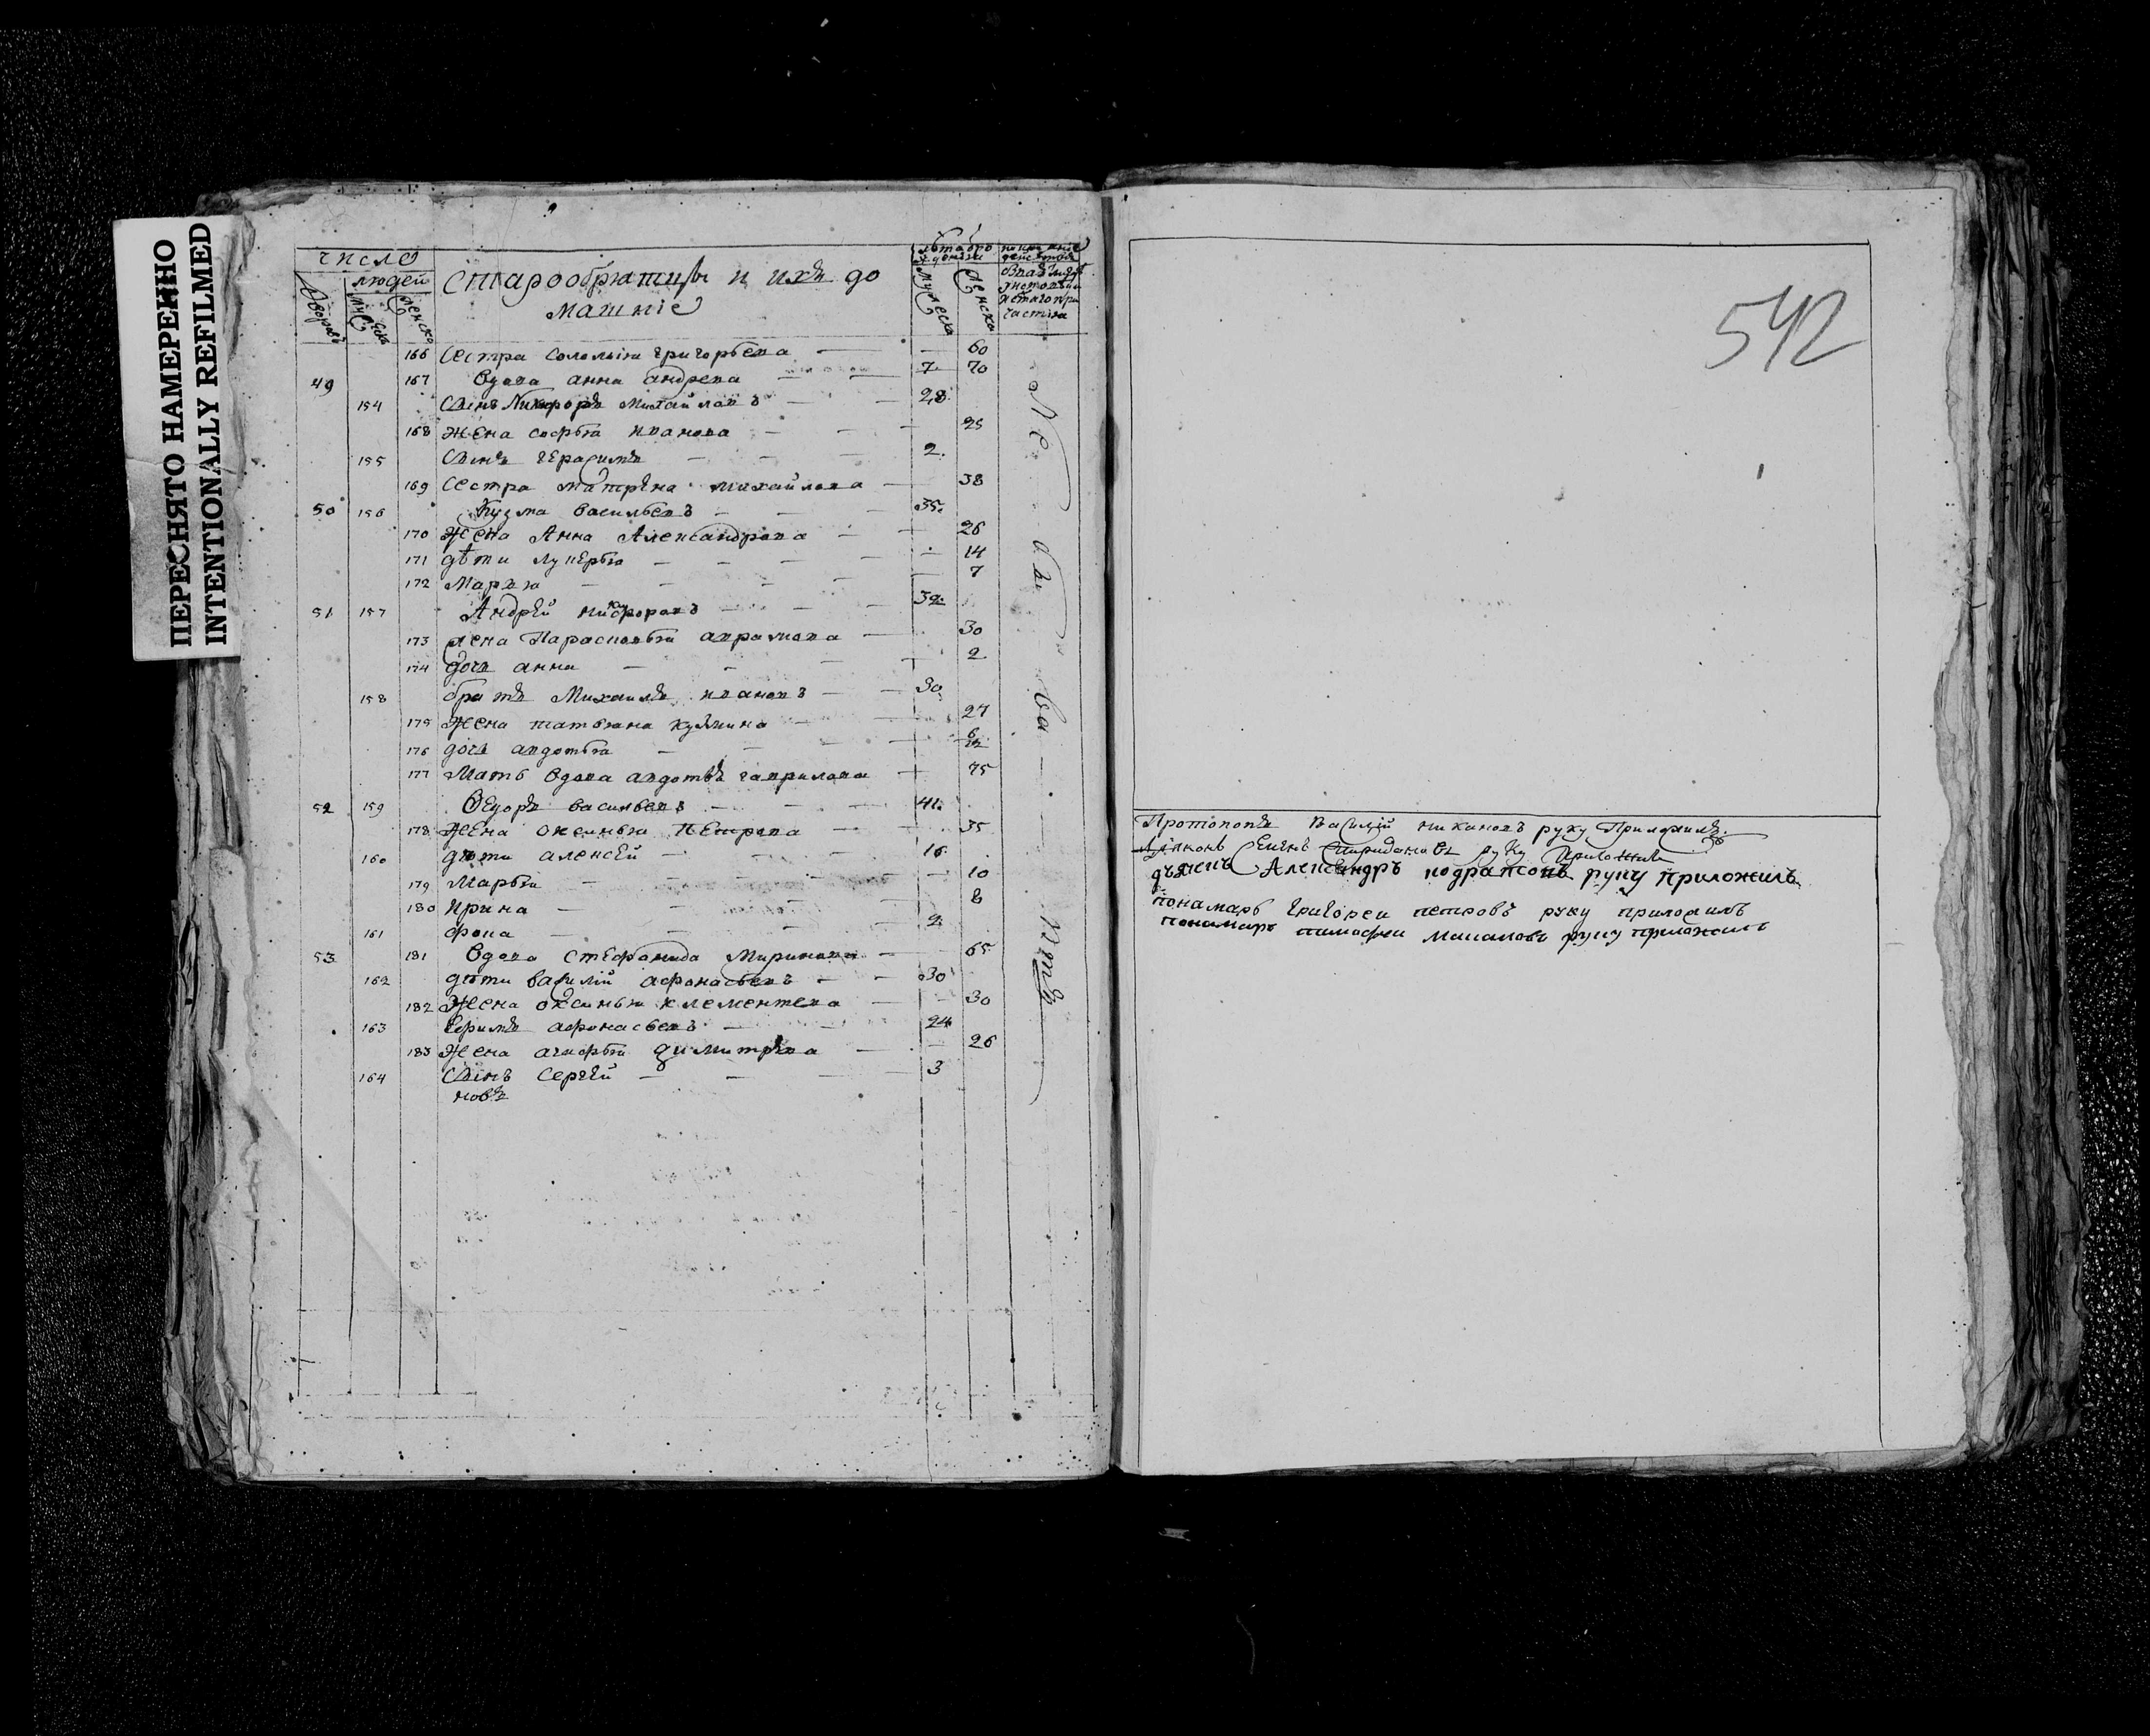 ПЕРЕСНЯТО НАМЕРЕННО
INTENTIONALLY REFILMED
число
людей
Старообрятцы и ихъ до
машніе
166 Сестра Соломыя григорьева — 60
49 167 Вдова анна андрева — 70
154 Сынъ Никифоръ Михайловъ — 28
168 жена софья иванова — 25
155 Сынъ герасимъ — 2
169 Сестра матрена михайлова — 38
50 156 Кузма васильевъ — 35
170 жена Анна Александрова — 26
171 дѣти лукерья — 14
172 Марья — 7
51 157 Андрей никифоровъ — 32
173 жена Парасковья аврамова — 30
174 дочь анна — 2
158 братъ Михаилъ ивановъ — 30
175 жена татьяна кузмина — 27
176 дочь авдотья — 6
177 Мать вдова авдотья гаврилова — 75
52 159 Ѳедоръ васильевъ — 41
178 жена оксинья петрова — 35
160 дѣти алексей — 16
179 Марья — 10
180 Ирина — 8
161 фока — 2
53 181 Вдова Стефанида Миринова — 65
162 дѣти василій афонасьевъ — 30
182 жена оксинья клементева — 30
163 Ефимъ афонасьевъ — 24
183 жена агафья димитрева — 26
164 Сынъ Сергѣй — 3
новъ
542
Протопопъ Василій никановъ руку Приложилъ
руку Приложилъ
дьяконъ Александръ руку приложилъ
пономарь григореи петровъ руку приложилъ
пономарь тимофеи руку приложилъ